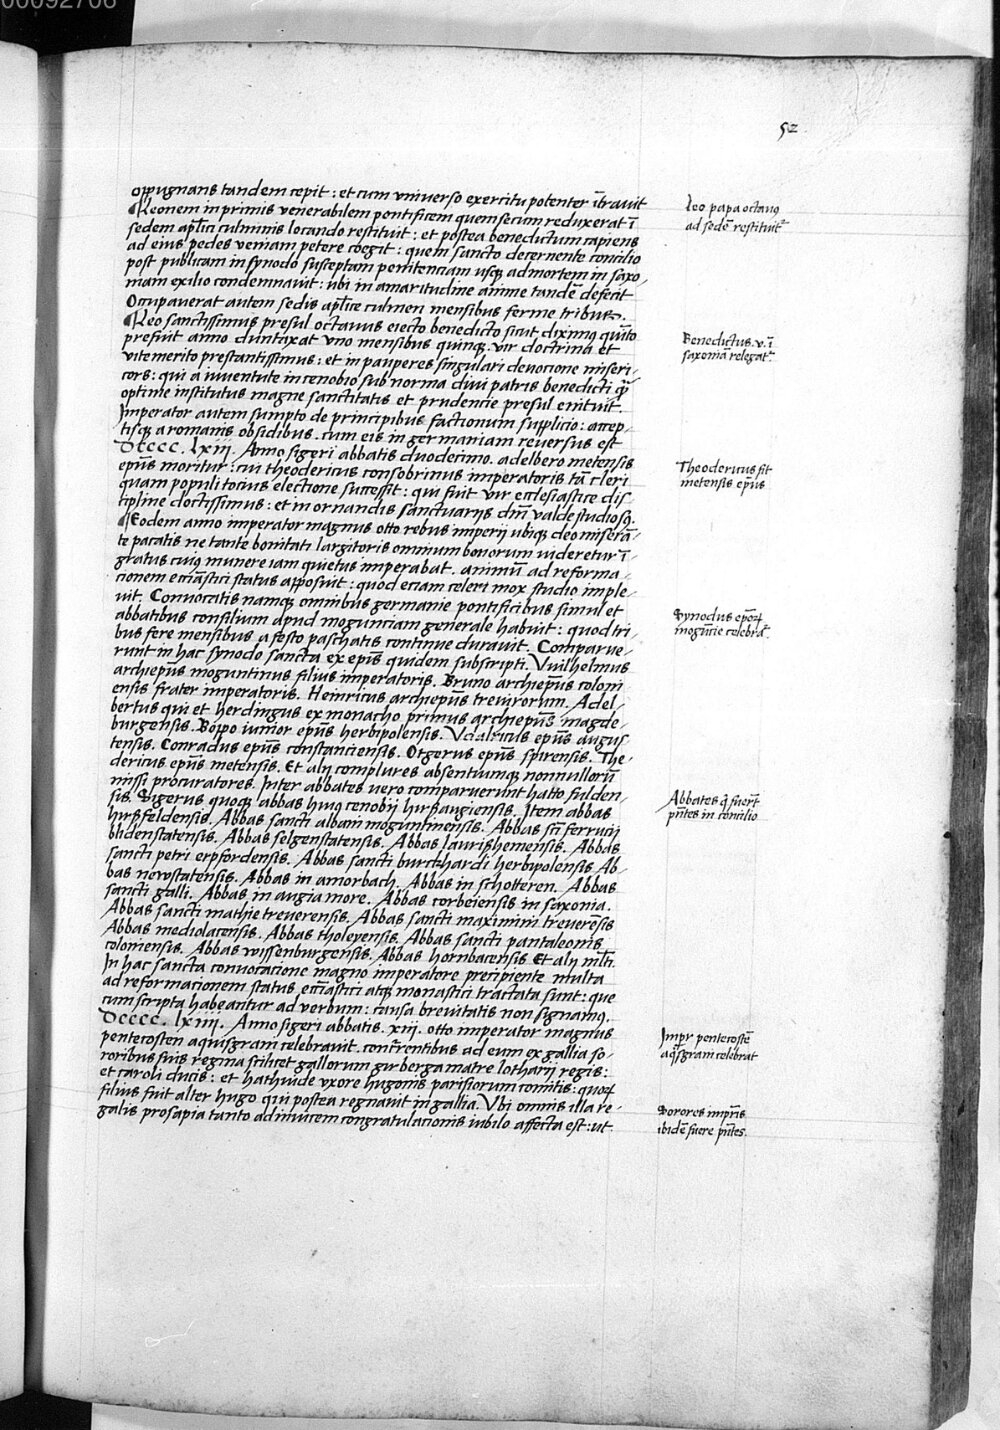 00092706
52
oppugnans tandem cepit : et cum vniuerso exercitu potenter īṭrauit
Leonem in primis venerabilem pontificem quem secum reduxerat ī
sedem apl̄ici culminis locando restituit : et postea benedictum capiens
ad eius pedes veniam petere coegit : quem sancto decernente concilio
post publicam in synodo susceptam penitenciam usq; ad mortem in saxo-
niam exilio condemnauit : vbi in amaritudine anime tandē defecit
Occupauerat autem sedis apl̄ice culmen mensibus ferme tribus.
Leo sanctissimus presul octauus eiecto benedicto sicut diximꝰ quīto
prefuit anno duntaxat vno mensibus quinq; vir doctrina et
vite merito prestantissimus : et in pauperes singulari deuocione miseri-
cors : qui a iuuentute in cenobio sub norma diui patris benedicti
optime institutus magne sanctitatis et prudencie presul enituit.
Imperator autem sumpto de principibus factionum supplicio : accep-
tisq; a romanis obsidibus. cum eis in germaniam reuersus est
Dcccc. lxiii. Anno sigeri abbatis duodecimo. adelbero metensis
ep̄us moritur : cui theodericus consobrinus imperatoris tā cleri
quam populi tocius electione successit : qui fuit vir ecclesiastice dis
cipline doctissimus : et in ornandis sanctuarijs dm̄ valde studiosꝰ.
Eodem anno imperator magnus otto rebus imperij ubiq; deo miserā-
te pacatis ne tante bonitati largitoris omnium bonorum videretur ī-
gratus cuiꝰ munere iam quietus imperabat. animū ad reforma-
cionem eccīastici status apposuit : quod eciam celeri mox studio imple-
uit. Conuocatis namq; omnibus germanie pontificibus simul et
abbatibus consilium apud mogunciam generale habuit : quod tri-
bus fere mensibus a festo paschatis continue durauit. Comparue-
runt in hac synodo sancta ex ep̄is quidem subscripti. Vuilhelmus
archiep̄us moguntinus filius imperatoris. Bruno archiep̄us coloni
ensis frater imperatoris. Heinricus archiep̄us treuirorum. Adel-
bertus qui et herdingus ex monacho primus archiep̄us magde-
burgensis. Boppo iunior ep̄us herbipolensis. Vdalricus ep̄us augus
tensis. Conradus ep̄us constanciensis. Otgerus ep̄us spirensis. The-
dericus ep̄us metensis. Et alij complures absentiumq; nonnullorū
missi procuratores. Inter abbates vero comparuerunt hatto fulden-
sis. Sigerus quoq; abbas huiꝰ cenobij hirßaugiensis. Item abbas
hirßfeldensis. Abbas sancti albani moguntinensis. Abbas sc̄i ferrucij
blidenstatensis. Abbas selgenstatensis. Abbas laurißhemensis. Abbas
sancti petri erpfordensis. Abbas sancti burckhardi herbipolensis Ab-
bas newstatensis. Abbas in amorbach. Abbas in schotteren. Abbas
sancti galli. Abbas in augia more. Abbas corbeiensis in saxonia.
Abbas sancti mathie treuerensis. Abbas sancti maximini treuerēsis
Abbas mediolacensis. Abbas tholeyensis. Abbas sancti pantaleonis
coloniensis. Abbas wissenburgensis. Abbas hornbacensis Et alij ml̄ti.
In hac sancta conuocacione magno imperatore precipiente multa
ad reformacionem status eccīastici atq; monastici tractata sunt : que
cum scripta habeantur ad verbum : causa breuitatis non signamꝰ.
Dcccc. lxiiii. Anno sigeri abbatis. xiii. otto imperator magnus
pentecosten aquisgrani celebrauit. conc̄rrentibus ad eum ex gallia so-
roribus suis regina scilicet gallorum gerberga matre lotharij regis :
et caroli ducis : et hathuide vxore hugonis parisiorum comitis : quoꝝ
filius fuit alter hugo qui postea regnauit in gallia. Vbi omnis illa re-
galis prosapia tanto adinuicem congratulacionis iubilo affecta est : ut
Leo papa octauꝰ
ad sedē restituitʳ
Benedictus. v. ī
saxoniā relegatʳ
Theodericus fit
metensis ep̄us
Synodus ep̄oꝝ
mogūcie celebraʳ
Abbates q̄ fuer̄t
pn̄tes in concilio
Imp̄r pentecostē
aq̄sgrani celebrat
Sorores imp̄ris
ibidē fuere pn̄tes.